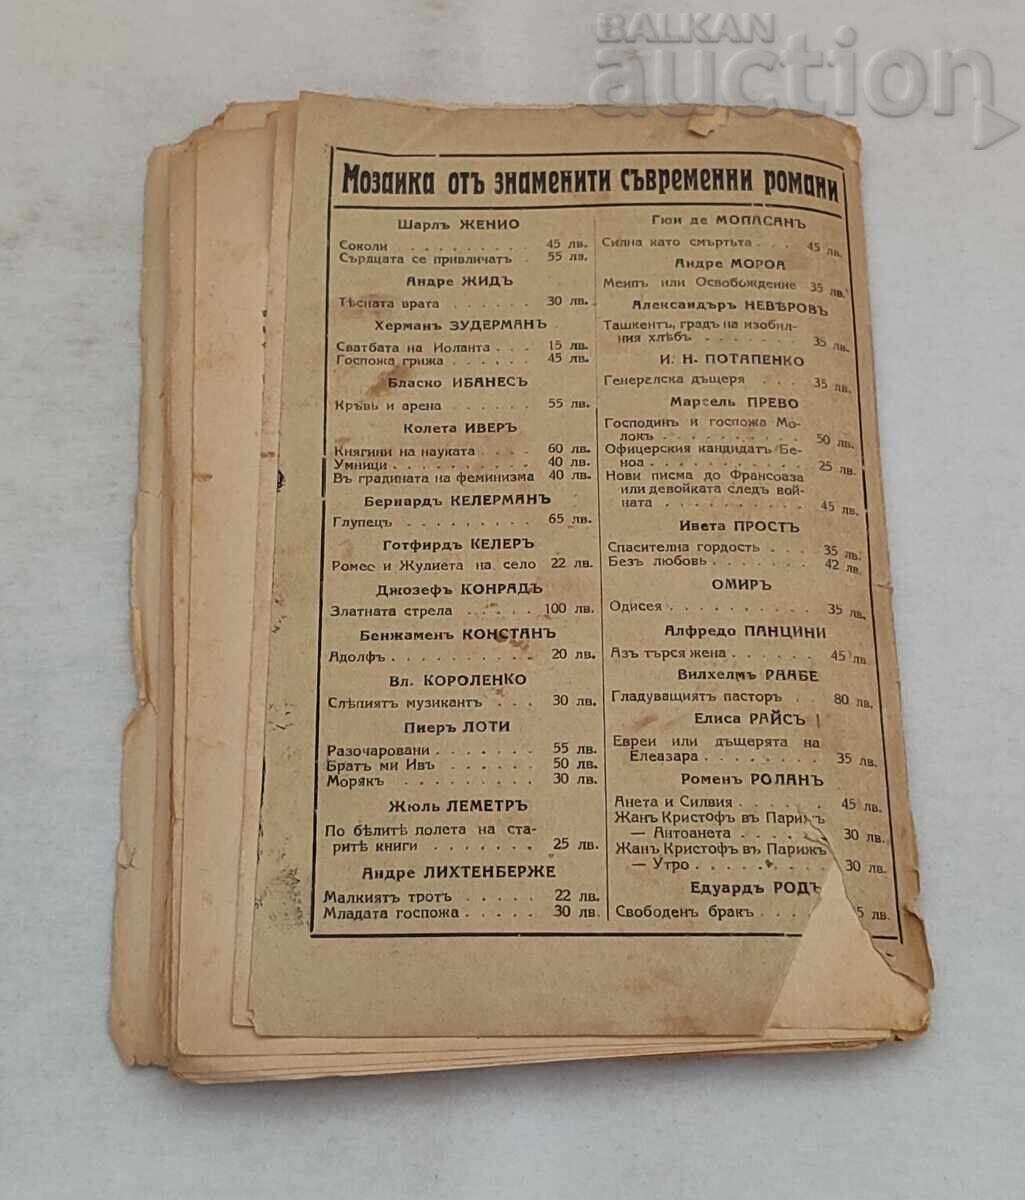 BALKAN
auction
Мозаика отъ знаменити съвременни романи
Шарлъ ЖЕНИО
Соколи . . . . . . . . . 45 лв.
Сърдцата се привличатъ . 55 лв.
Андре ЖИДЪ
Тѣсната врата . . . . . . 30 лв.
Херманъ ЗУДЕРМАНЪ
Сватбата на Иоланта . . . 15 лв.
Госпожа грижа . . . . . . 45 лв.
Бласко ИБАНЕСЪ
Кръвь и арена . . . . . . 55 лв.
Колета ИВЕРЪ
Княгини на науката . . . . 60 лв.
Умници . . . . . . . . . . 40 лв.
Въ градината на феминизма 40 лв.
Бернардъ КЕЛЕРМАНЪ
Глупецъ . . . . . . . . . 65 лв.
Готфирдъ КЕЛЕРЪ
Ромео и Жулиета на село 22 лв.
Джозефъ КОНРАДЪ
Златната стрела . . . . . 100 лв.
Бенжаменъ КОНСТАНЪ
Адолфъ . . . . . . . . . . 20 лв.
Вл. КОРОЛЕНКО
Слѣпиятъ музикантъ . . . 30 лв.
Пиеръ ЛОТИ
Разочаровани . . . . . . . 55 лв.
Братъ ми Ивъ . . . . . . 50 лв.
Морякъ . . . . . . . . . 30 лв.
Жюль ЛЕМЕТРЪ
По бѣлитѣ полета на ста-
ритѣ книги . . . . . . . 25 лв.
Андре ЛИХТЕНБЕРЖЕ
Малкиятъ тротъ . . . . . 22 лв.
Младата госпожа . . . . . 30 лв.
Гюи де МОПАСАНЪ
Силна като смъртьта . . . 45 лв.
Андре МОРОА
Меипъ или Освобождение 35 лв.
Александъръ НЕВѢРОВЪ
Ташкентъ, градъ на изобил-
ния хлѣбъ . . . . . . . 35 лв.
И. Н. ПОТАПЕНКО
Генералска дъщеря . . . 35 лв.
Марсель ПРЕВО
Господинъ и госпожа Мо-
локъ . . . . . . . . . . 50 лв.
Офицерския кандидатъ Бе-
ноа . . . . . . . . . . 25 лв.
Нови писма до Франсоаза
или девойката следъ вой-
ната . . . . . . . . . . 45 лв.
Ивета ПРОСТЪ
Спасителна гордость . . . . 35 лв.
Безъ любовь . . . . . . . 42 лв.
ОМИРЪ
Одисея . . . . . . . . . . 35 лв.
Алфредо ПАНЦИНИ
Азъ търся жена . . . . . . 45 лв.
Вилхелмъ РААБЕ
Гладуващиятъ пасторъ . . 80 лв.
Елиса РАЙСЪ
Евреи или дъщерята на
Елеазара . . . . . . . . 35 лв.
Роменъ РОЛАНЪ
Анета и Силвия . . . . . . 45 лв.
Жанъ Кристофъ въ Парижъ
— Антоанета . . . . . 30 лв.
Жанъ Кристофъ въ Парижъ
— Утро . . . . . . . . 30 лв.
Едуардъ РОДЪ
Свободенъ бракъ . . . 5 лв.